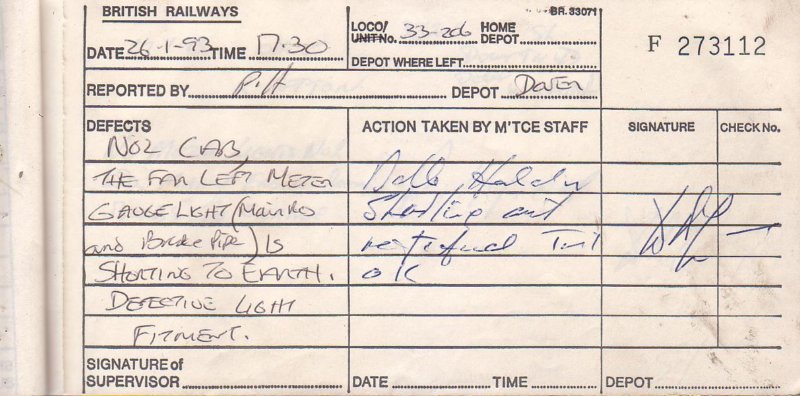 BRITISH RAILWAYS
BR. 33071
DATE 26-1-93 TIME 17.30
LOCO/ UNIT No. 33-206 HOME DEPOT
DEPOT WHERE LEFT
F 273112
REPORTED BY P. H DEPOT Dover
DEFECTS ACTION TAKEN BY M'TCE STAFF SIGNATURE CHECK No.
No2 CAB,
THE FAR LEFT METER
GAUGE LIGHT (Main Res
and Brake Pipe) IS
SHORTING TO EARTH.
DEFECTIVE LIGHT
FITMENT.
Bulb Holder
Shorting out
rectified Test
OK
SIGNATURE of
SUPERVISOR DATE TIME DEPOT